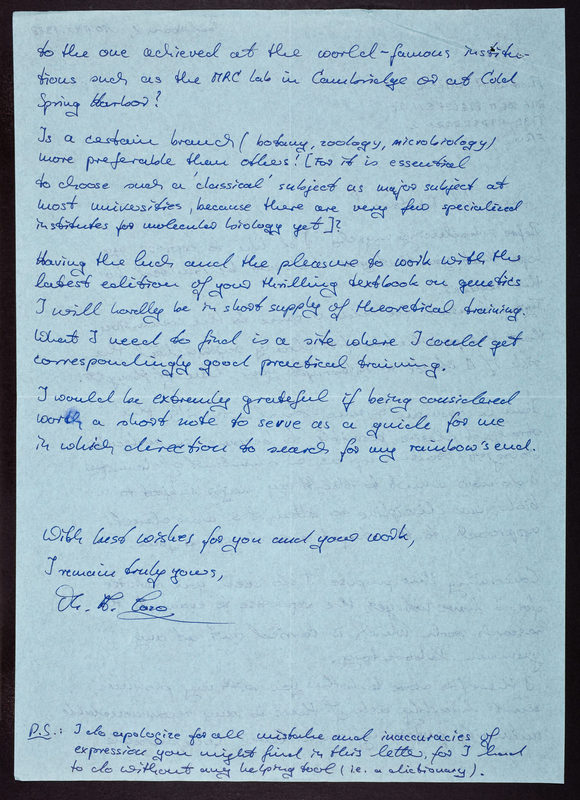 to the one achieved at the world-famous institu-
tions such as the MRC lab in Cambridge or at Cold
Spring Harbor?
Is a certain branch (botany, zoology, microbiology)
more preferable than others? [For it is essential
to choose such a 'classical' subject as major subject at
most universities, because there are very few specialized
institutes for molecular biology yet]?
Having the luck and the pleasure to work with the
latest edition of your thrilling textbook on genetics
I will hardly be in short supply of theoretical training.
What I need to find is a site where I could get
correspondingly good practical training.
I would be extremly grateful if being considered
worth a short note to serve as a guide for me
in which direction to search for my rainbow's end.
With best wishes for you and your work,
I remain truly yours,
P.S.: I do apologize for all mistake and inaccuracies of
expression you might find in this letter, for I had
to do without any helping tool (i.e. a dictionary).